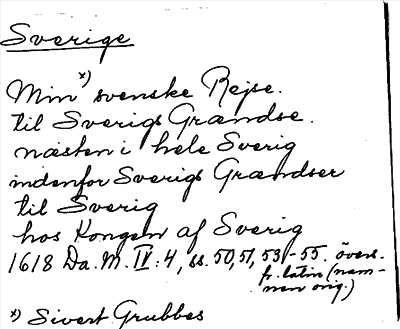 Sverige
Min *) svenske Rejse.
til Sverigs Grændse.
næsten i hele Sverig
indenfor Sverigs Grændser
til Sverig
hos Kongen af Sverig
1618 Da. M. IV: 4, ss. 50, 51, 53-55. övers.
fr. latin (nam-
nen orig.)
*) Sivert Grubbes